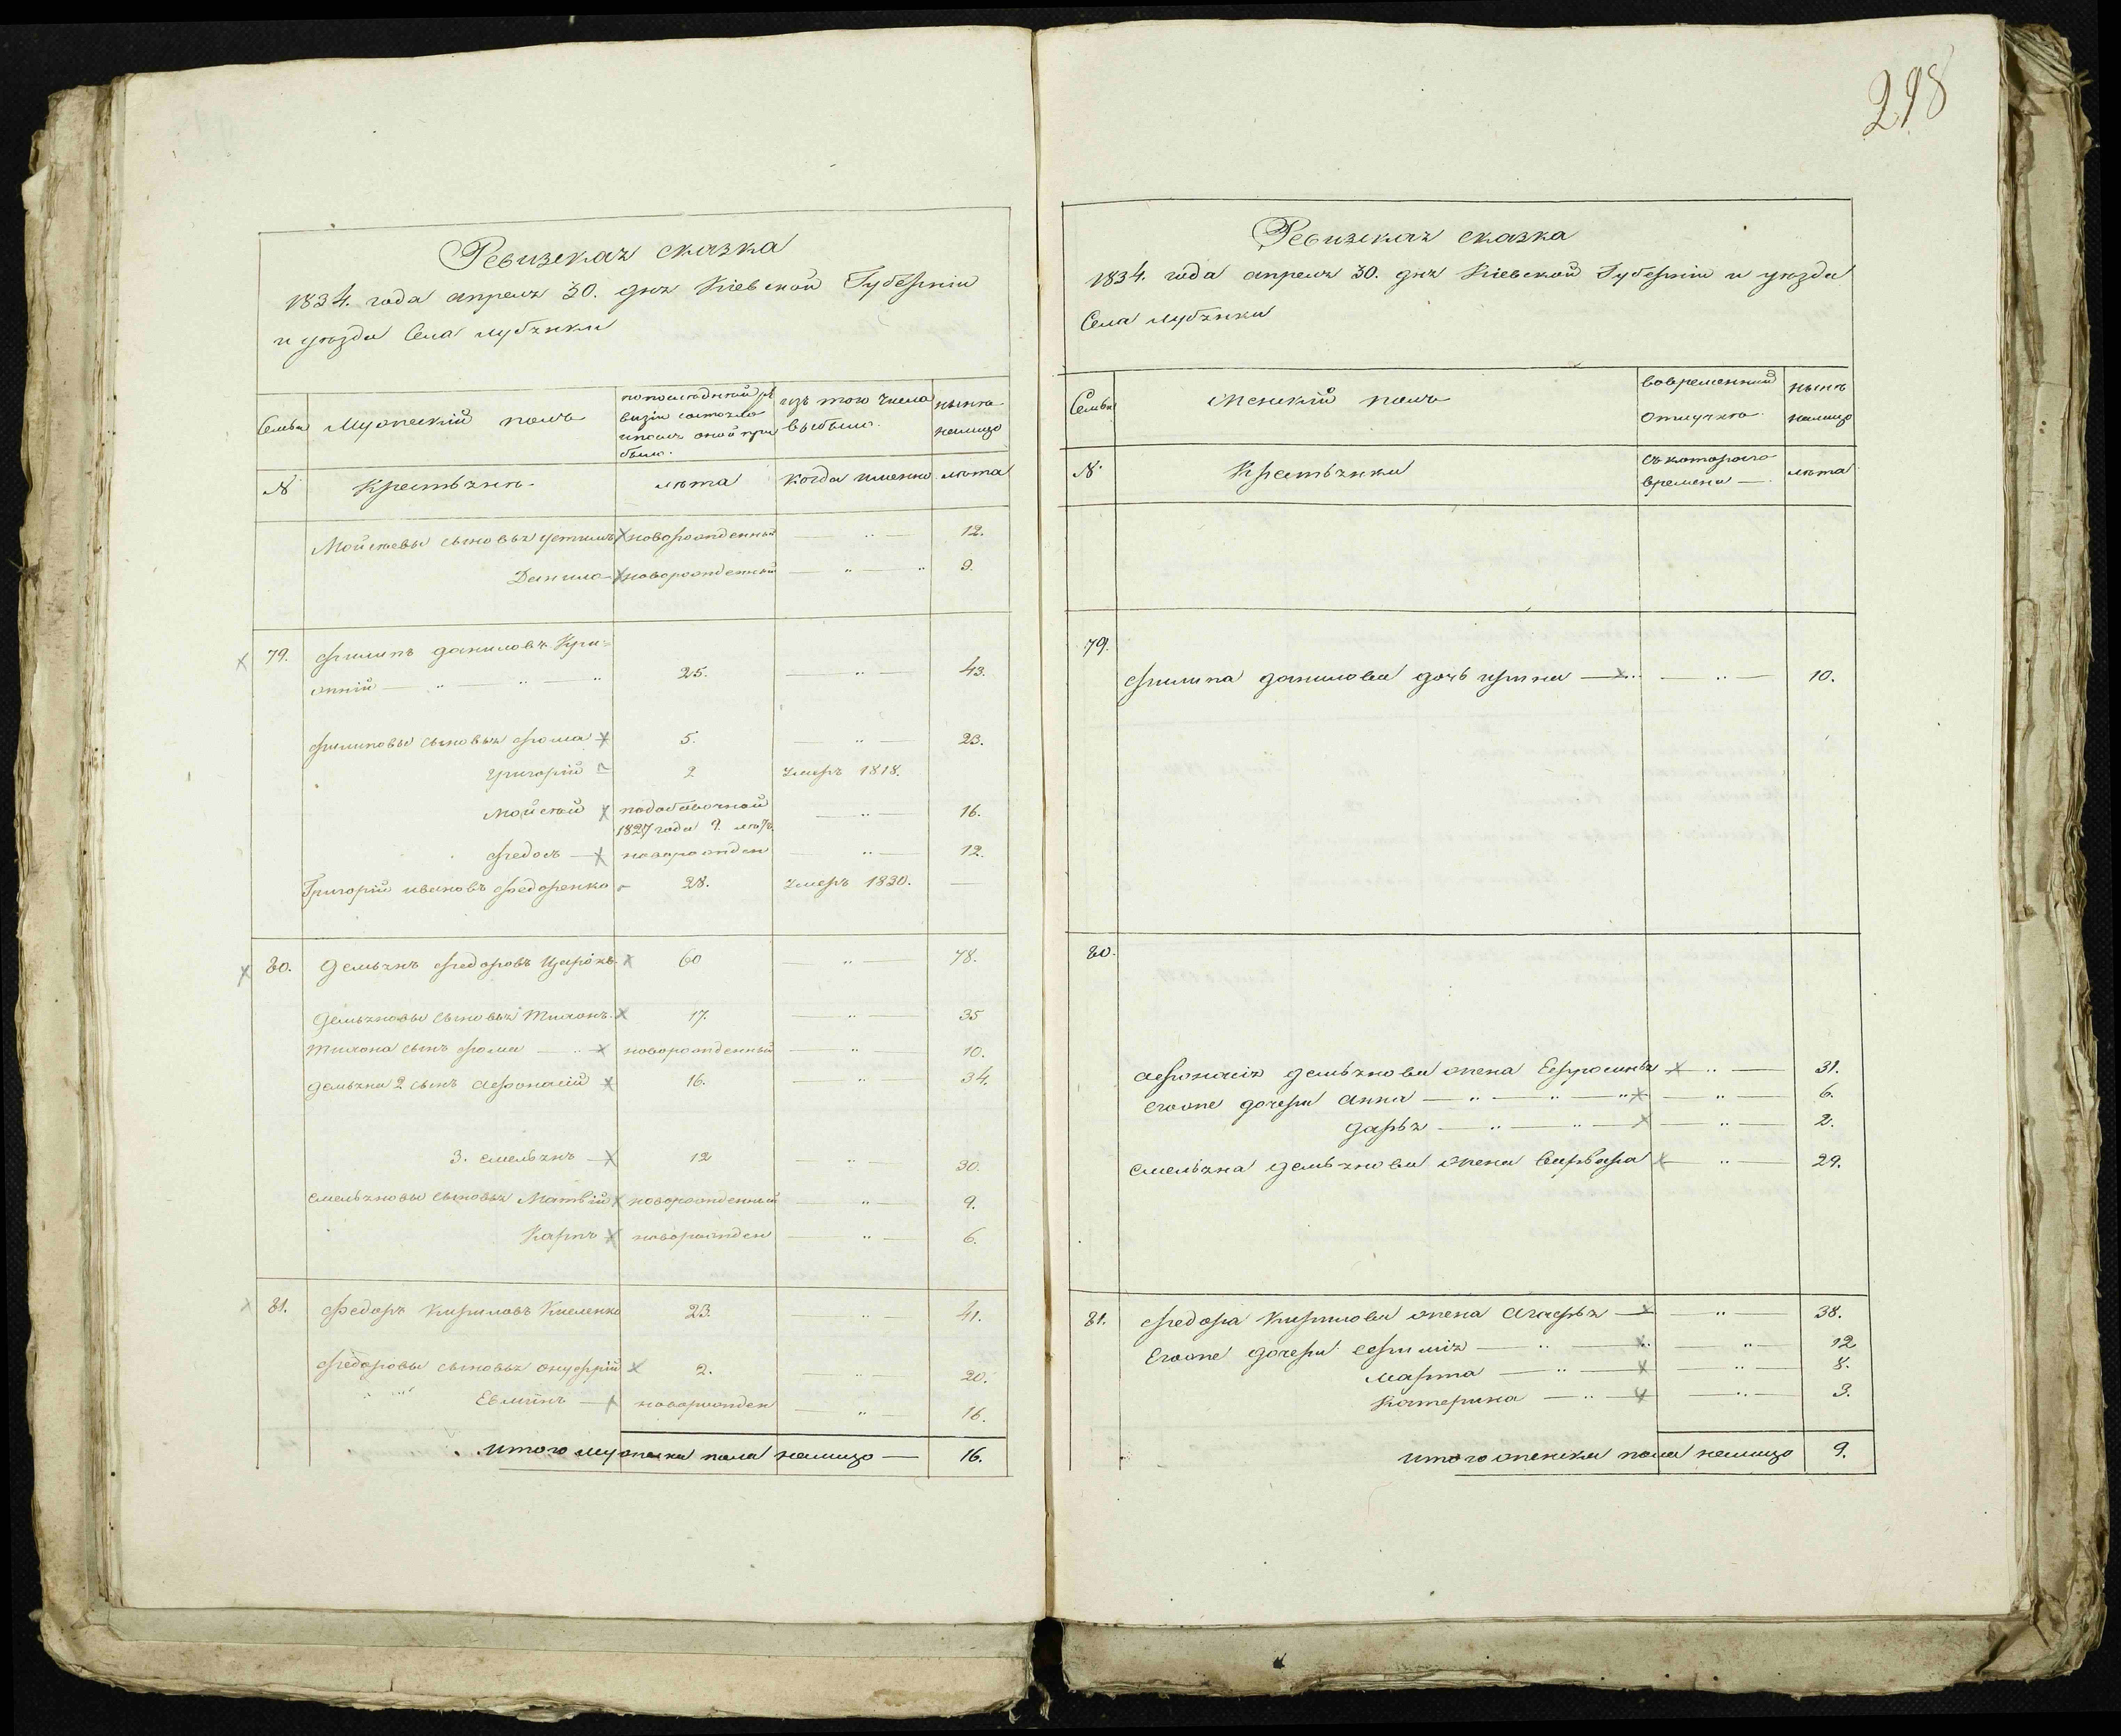 298
Ревизская сказка
1834. года апреля 30. дня Кіевской Губерніи
и уезда Села лубянки
Семьи
Мужескій полъ
по последней ре
визіи состояло
и после оной при
было.
изъ того числа
выбыло.
ныне
налицо
N
Крестьяне
лета
когда именно
лета
Мойсеевы сыновья устимъ новорожденный — 12.
Данило новорожденный — 9.
79. филипъ даниловъ
25. — 43.
филиповы сыновья фома 5. — 23.
григорій 2 умеръ 1818.
мойсей подобавочной
1827 года 9. летъ — 16.
федосъ — новорожден — 12.
Григорій ивановъ федоренко 28. умеръ 1830. —
80. Демьянъ федоровъ 60 — 78.
Демьяновы сыновья Тихонъ 17. — 35
Тихона сынъ фома — новорожденный — 10.
демьяна 2 сынъ афонасій 16. — 34.
3. емельянъ — 12 — 30.
емельяновы сыновья Матвій новорожденный — 9.
Карпъ новорожден — 6.
81. Федоръ Кириловъ 23. — 41.
федоровы сыновья онуфрій 2. — 20.
новорожден — 16.
итого мужеска пола налицо — 16.
Ревизская сказка
1834. года апреля 30. дня Кіевской Губерніи и уезда
Села лубянки
Семьи
женскій полъ
вовременной
отлучке
ныне
налицо
N.
Крестьянки
съ котораго
времени —
лета
79.
филипа данилова дочь ирина — 10.
80.
афонасія демьянова жена Ефросинья — 31.
Егоже дочери анна — 6.
дарья — 2.
емельяна демьянова жена варвара — 29.
81. федора Кирилова жена агафья — 38.
Егоже дочери ефимія — 12
марина — 8.
Катерина — 3.
итого женска пола налицо 9.